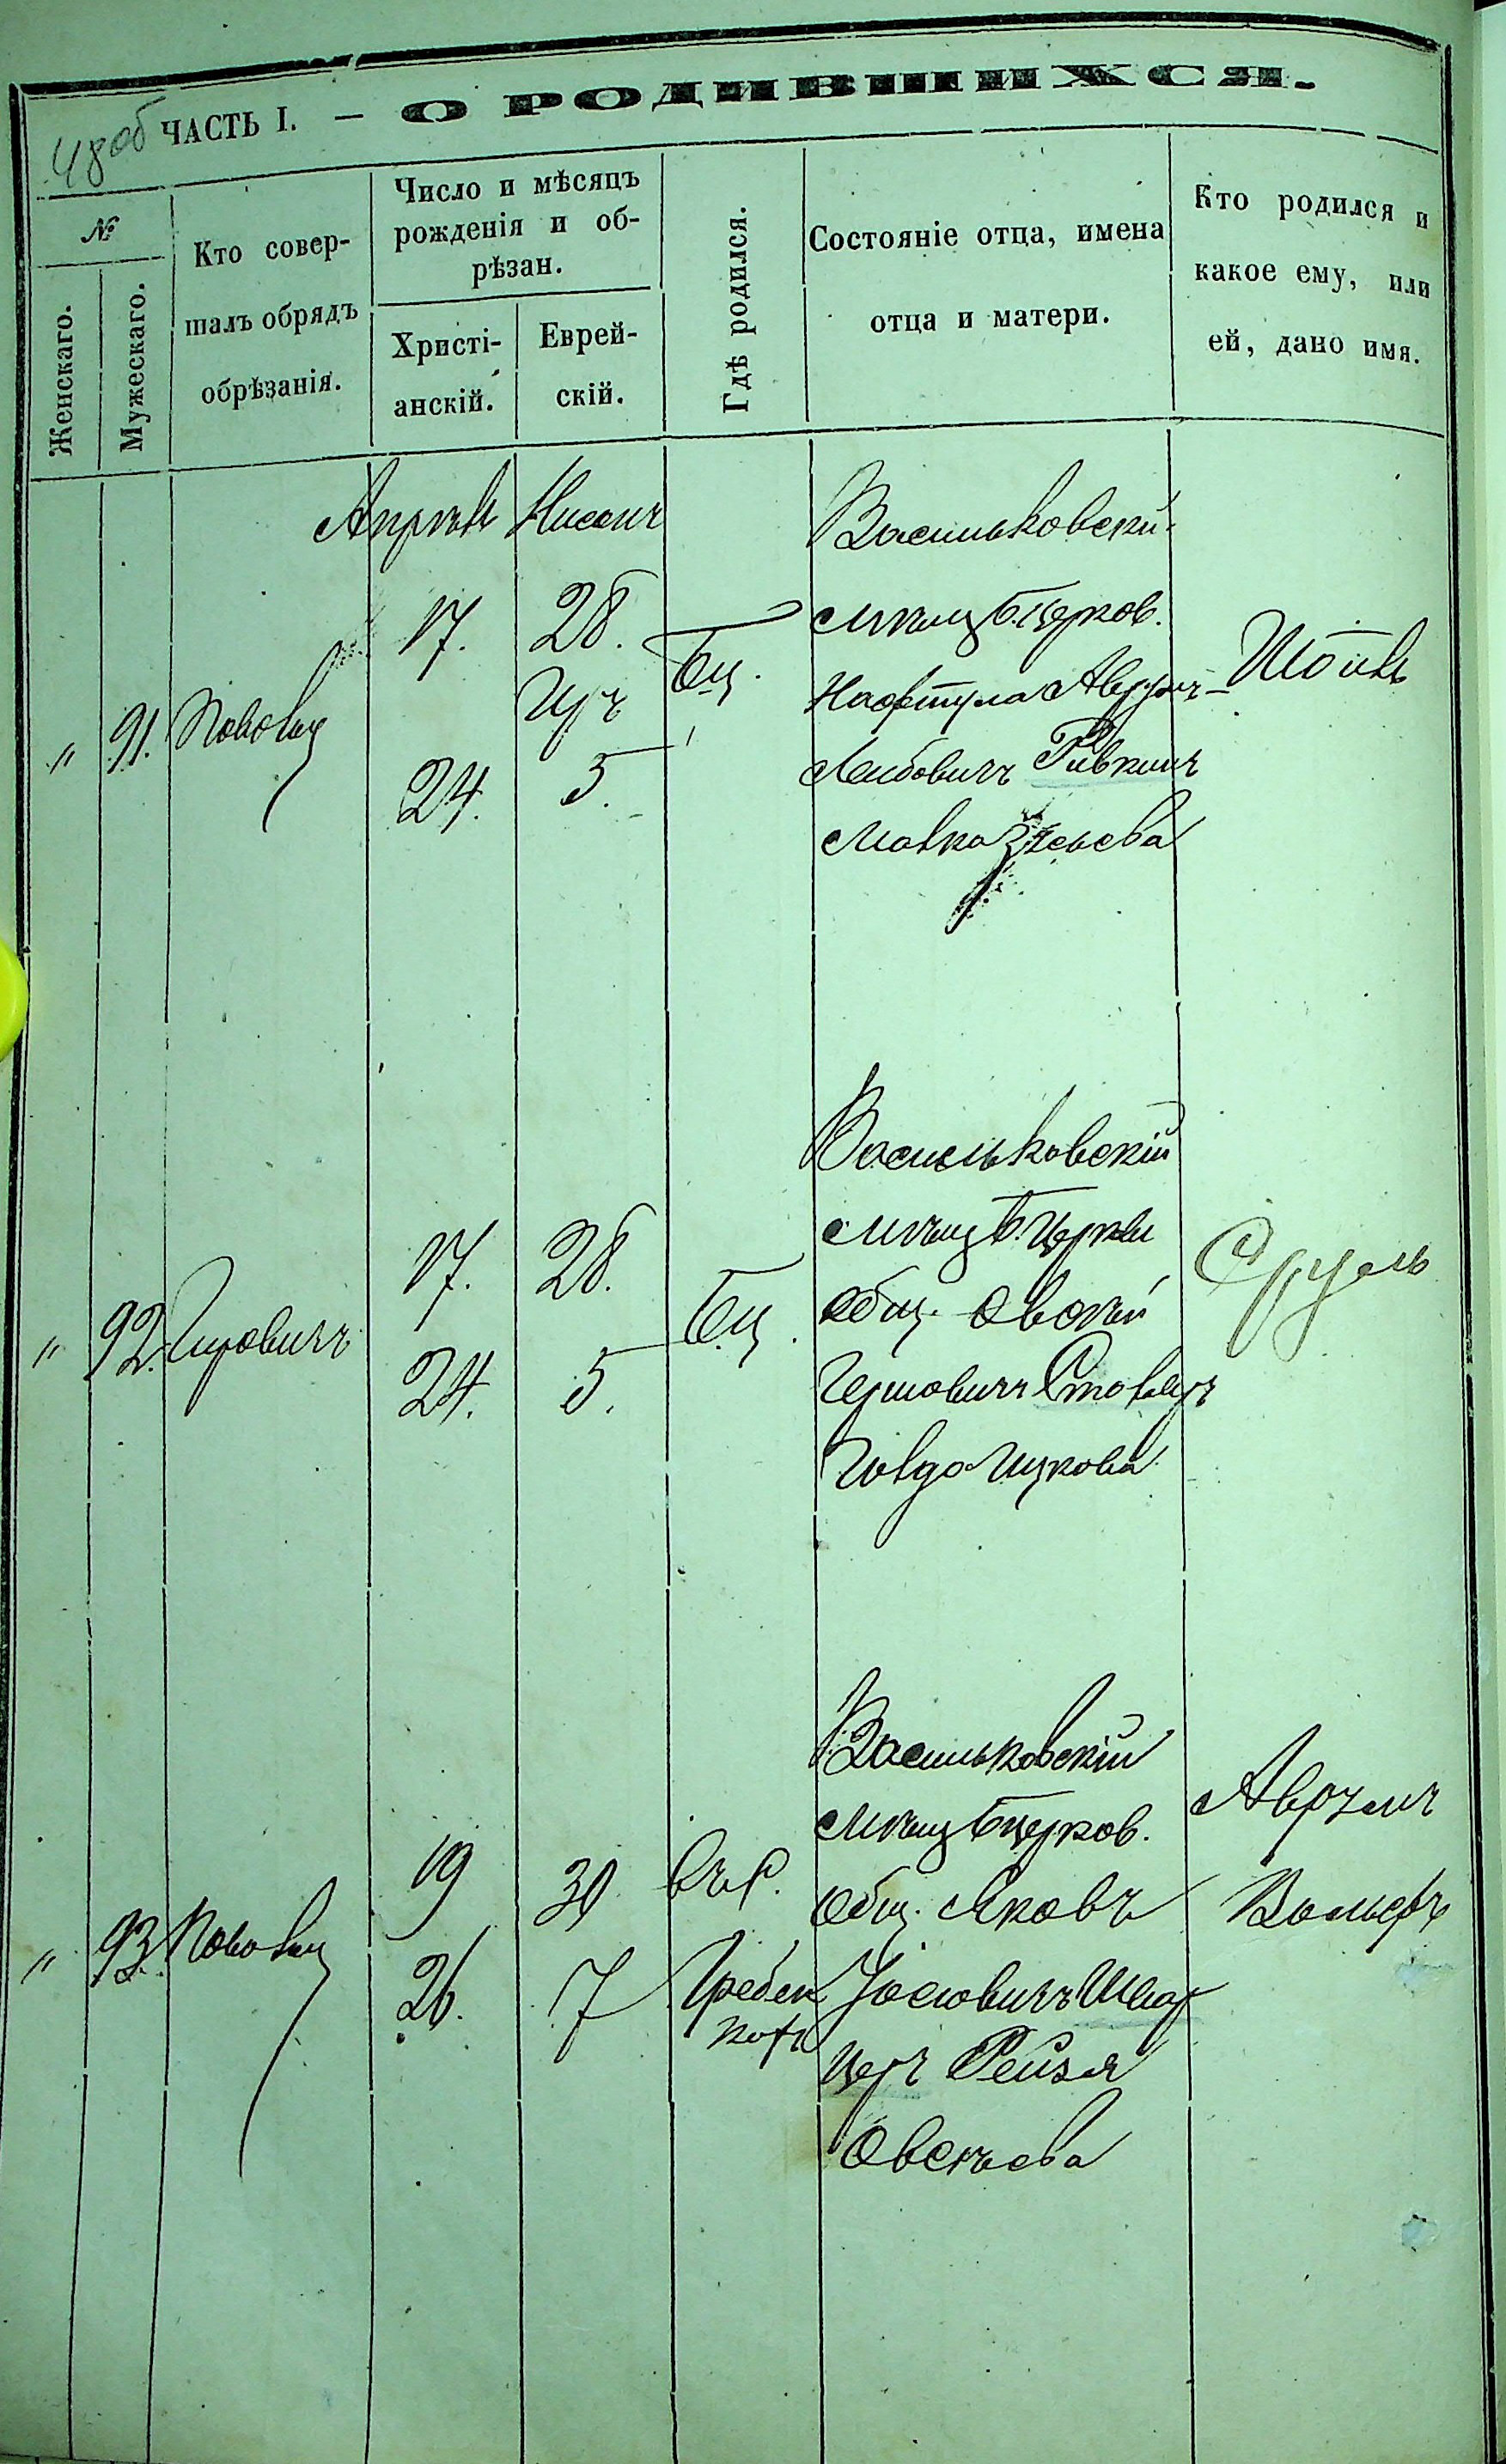 48об
ЧАСТЬ I. — О РОДИВШИХСЯ.
№
Женскаго.
Мужескаго.
Кто совер-
шалъ обрядъ
обрѣзанія.
Число и мѣсяцъ
рожденія и об-
рѣзан.
Христі-
анскій.
Еврей-
скій.
Гдѣ родился.
Состояніе отца, имена
отца и матери.
Кто родился и
какое ему, или
ей, дано имя.
Апрѣль Нисанъ
"
91.
17.
24.
28.
Иръ
5.
Бц.
Васильковскій
мѣщ Б.церков.
Нафтула Аврумъ
Лейбовичъ Ривкинъ
Малка
"
92.
17.
24.
28.
5.
Бц.
Васильковскій
мѣщ Б.церкви
общ. Овсѣй
Гершовичъ Столяръ
Голда Ицкова
Сруль
"
93.
19
26.
30
7
въ с.
Гребен
ках
Васильковскій
мѣщ Бцерков.
общ. Яковъ
Іосіовичъ Швар
церъ Рейзя
Овсѣева
Аврумъ
Вольфъ